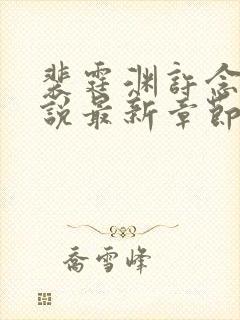 裴霆渊許念
說最新章節
喬雪峰